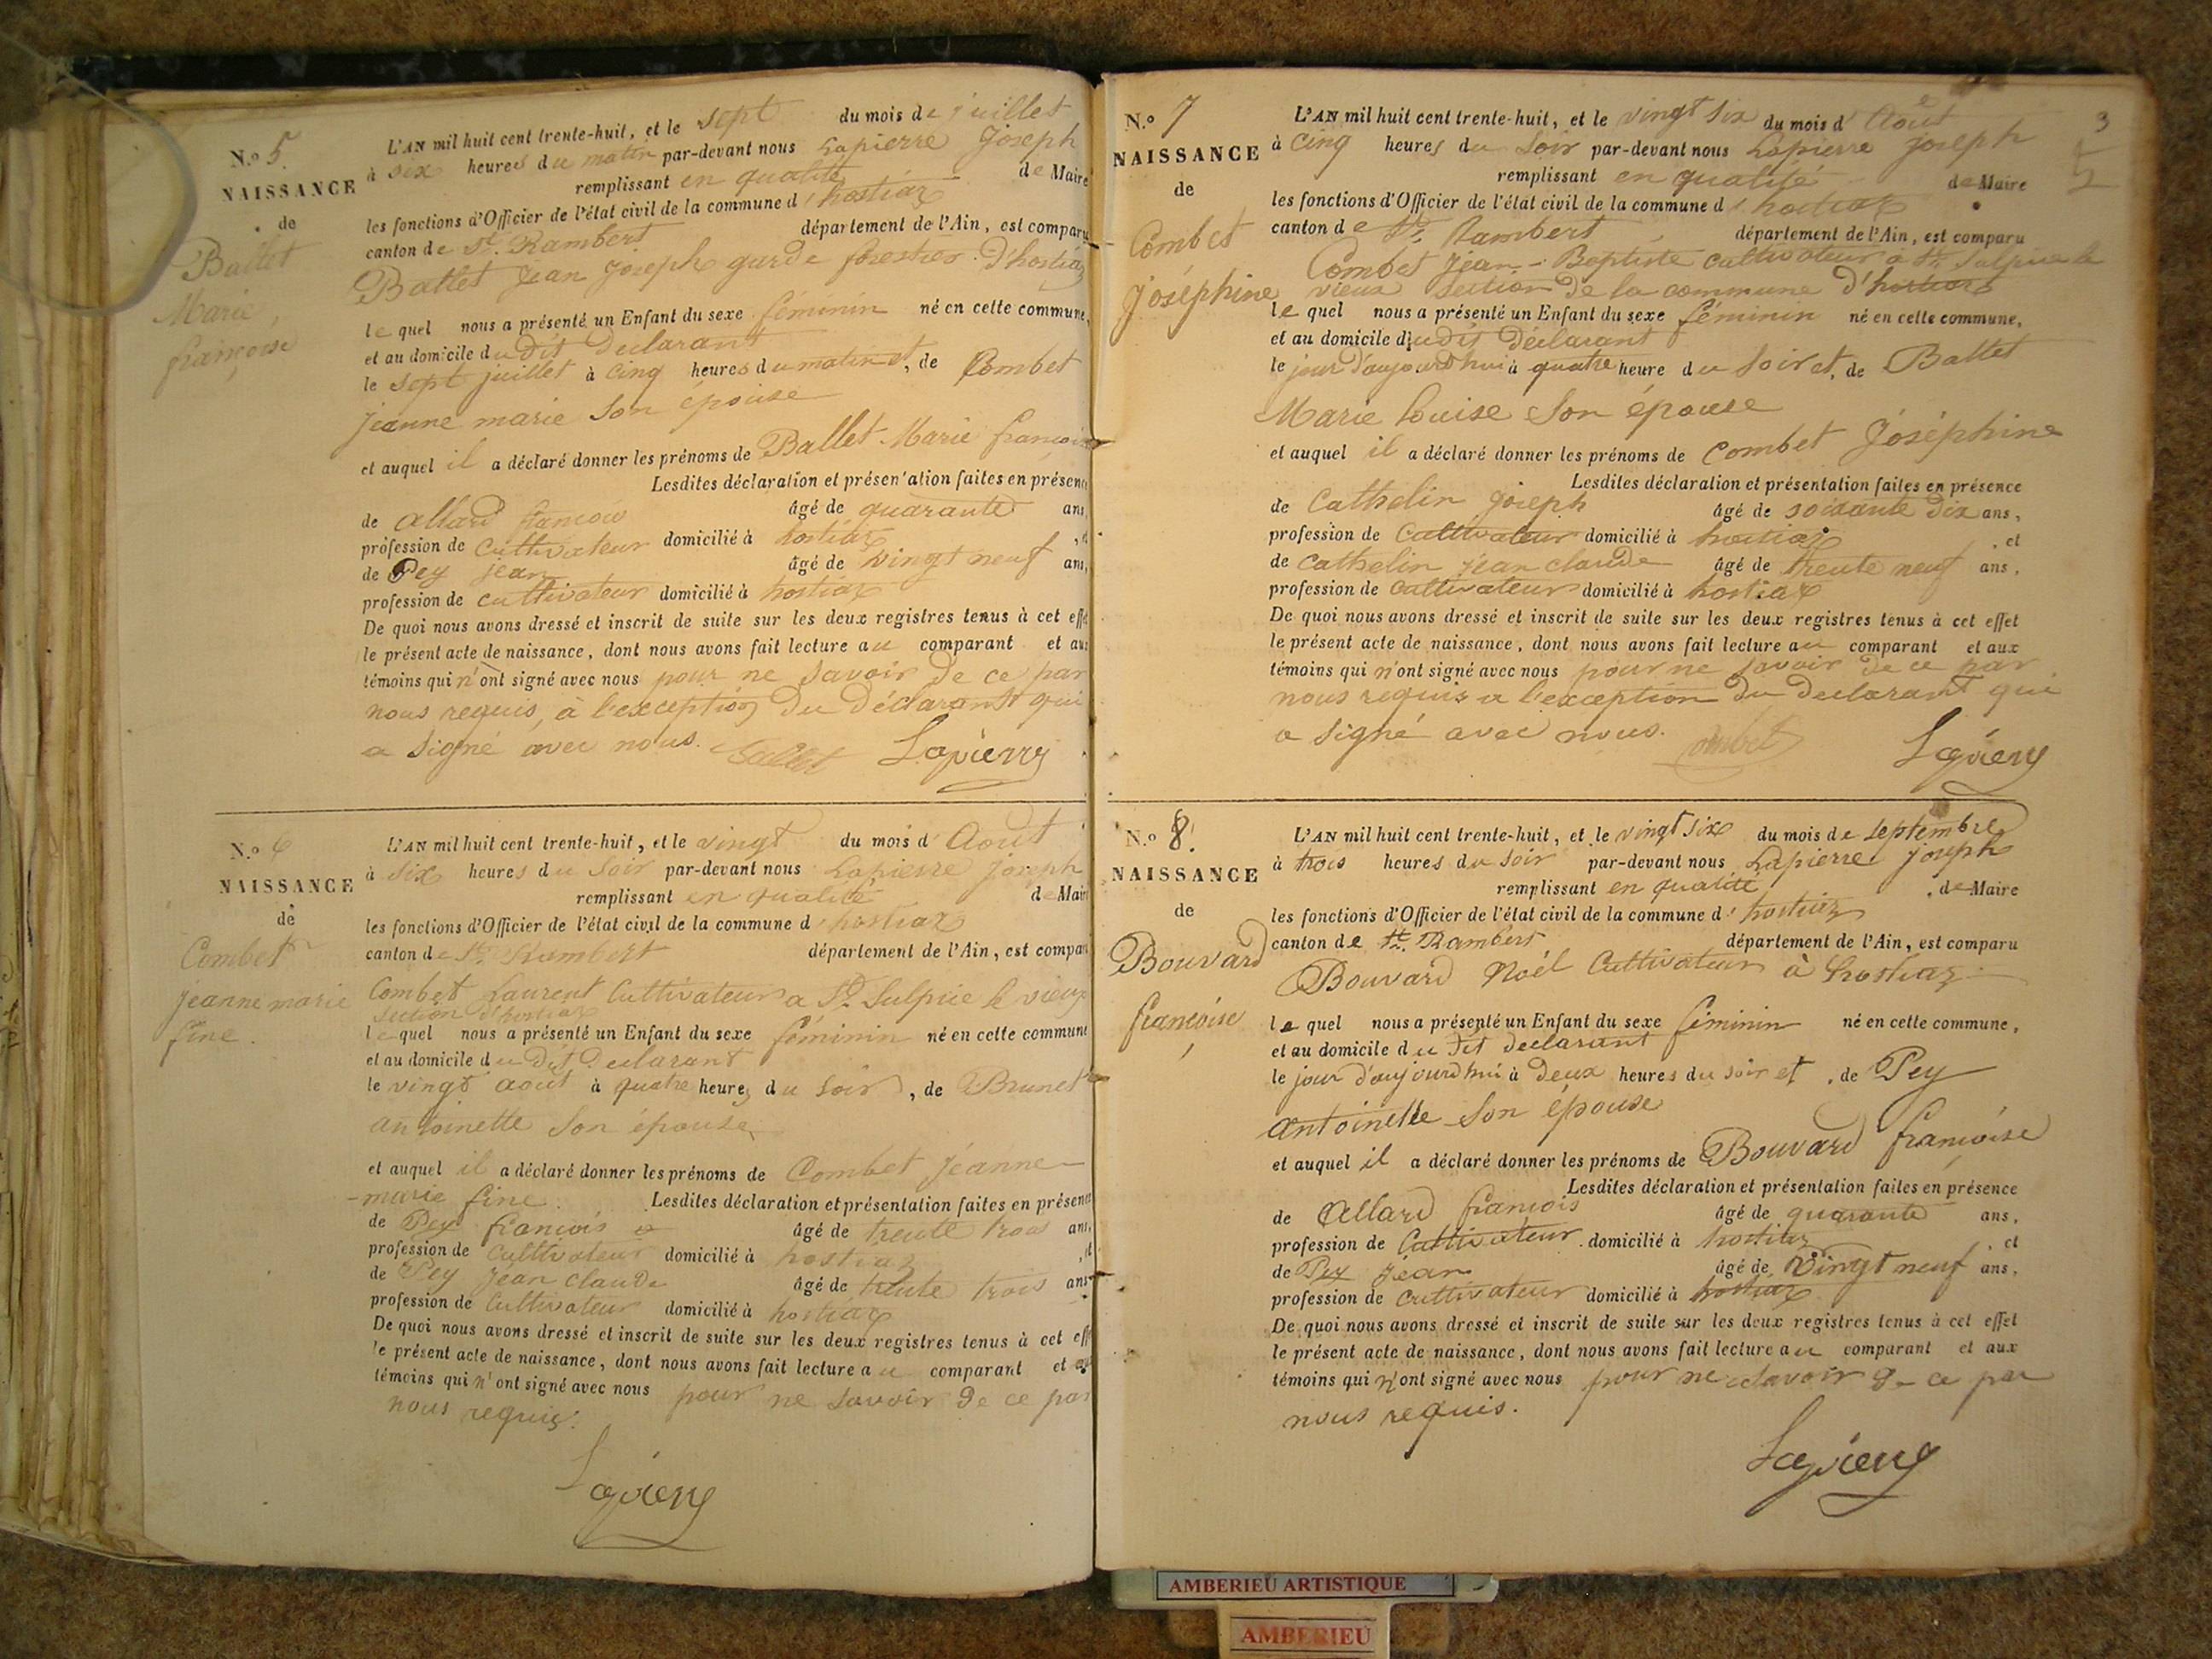 N.o 5
NAISSANCE
de
Ballet
Marie
françoise
L'AN mil huit cent trente-huit, et le sept du mois de juillet
à six heures du matin par-devant nous Lapierre Joseph
remplissant en qualité de Maire
les fonctions d'Officier de l'état civil de la commune d'hostiaz
canton de St. Rambert département de l'Ain, est comparu
Ballet Jean Joseph garde forestier d'hostiaz
lequel nous a présenté un Enfant du sexe féminin né en cette commune,
et au domicile du dit Déclarant
le sept juillet à cinq heures du matin et, de Combet
jeanne marie son épouse
et auquel il a déclaré donner les prénoms de Ballet Marie françoise
Lesdites déclaration et présentation faites en présence
de Allard françois âgé de quarante ans,
profession de cultivateur domicilié à hostiaz, et
de Pey jean âgé de vingt neuf ans,
profession de cultivateur domicilié à hostiaz
De quoi nous avons dressé et inscrit de suite sur les deux registres tenus à cet effet
le présent acte de naissance, dont nous avons fait lecture au comparant et aux
témoins qui n'ont signé avec nous pour ne savoir de ce par
nous requis, à l'exception du déclarant qui
a signé avec nous. Ballet Lapierre
N.o 6
NAISSANCE
de
Combet
jeanne marie
fine.
L'AN mil huit cent trente-huit, et le vingt du mois d'Août
à six heures du soir par-devant nous Lapierre joseph
remplissant en qualité de Maire
les fonctions d'Officier de l'état civil de la commune d'hostiaz
canton de St. Rambert département de l'Ain, est comparu
Combet Laurent Cultivateur a St. Sulpice le vieux
section d'hostiaz
lequel nous a présenté un Enfant du sexe féminin né en cette commune
et au domicile du dit Declarant
le vingt août à quatre heures du soir, de Brunet
antoinette son épouse
et auquel il a déclaré donner les prénoms de Combet Jéanne
-marie fine. Lesdites déclaration et présentation faites en présence
de Pey françois âgé de trente trois ans,
profession de Cultivateur domicilié à hostiaz, et
de Pey Jean claude âgé de trente trois ans
profession de Cultivateur domicilié à hostiaz
De quoi nous avons dressé et inscrit de suite sur les deux registres tenus à cet effet
le présent acte de naissance, dont nous avons fait lecture au comparant et aux
témoins qui n'ont signé avec nous pour ne savoir de ce par
nous requis.
Lapierre
3
N.o 7
NAISSANCE
de
Combet
Joséphine
L'AN mil huit cent trente-huit, et le vingt six du mois d'Août
à cinq heures du soir par-devant nous Lapierre joseph
remplissant en qualité de Maire
les fonctions d'Officier de l'état civil de la commune d'hostiaz
canton de St. Rambert département de l'Ain, est comparu
Combet Jean-Baptiste cultivateur a St. Sulpice le
vieux section de la commune d'hostiaz
lequel nous a présenté un Enfant du sexe féminin né en cette commune,
et au domicile du dit Déclarant
le jour d'aujourd'hui à quatre heure du soir et, de Ballet
Marie louise son épouse
et auquel il a déclaré donner les prénoms de Combet Joséphine
Lesdites déclaration et présentation faites en présence
de Cathelin joseph âgé de soixante dix ans,
profession de Cultivateur domicilié à hostiaz, et
de Cathelin jean claude âgé de trente neuf ans,
profession de Cultivateur domicilié à hostiaz
De quoi nous avons dressé et inscrit de suite sur les deux registres tenus à cet effet
le présent acte de naissance, dont nous avons fait lecture au comparant et aux
témoins qui n'ont signé avec nous pour ne savoir de ce par
nous requis a l'exception du declarant qui
a signé avec nous. Combet Lapierre
N.o 8.
NAISSANCE
de
Bouvard
françoise
L'AN mil huit cent trente-huit, et le vingt six du mois de septembre
à trois heures du soir par-devant nous Lapierre joseph
remplissant en qualité de Maire
les fonctions d'Officier de l'état civil de la commune d'hostiaz
canton de St. Rambert département de l'Ain, est comparu
Bouvard Noél Cultivateur à hostiaz
lequel nous a présenté un Enfant du sexe féminin né en cette commune,
et au domicile du dit declarant
le jour d'aujourd'hui à deux heures du soir et, de Pey
antoinette son épouse
et auquel il a déclaré donner les prénoms de Bouvard françoise
Lesdites déclaration et présentation faites en présence
de Allard françois âgé de quarante ans,
profession de Cultivateur domicilié à hostiaz, et
de Pey jean âgé de vingt neuf ans,
profession de cultivateur domicilié à hostiaz
De quoi nous avons dressé et inscrit de suite sur les deux registres tenus à cet effet
le présent acte de naissance, dont nous avons fait lecture au comparant et aux
témoins qui n'ont signé avec nous pour ne savoir de ce par
nous requis.
Lapierre
AMBERIEU ARTISTIQUE
AMBERIEU